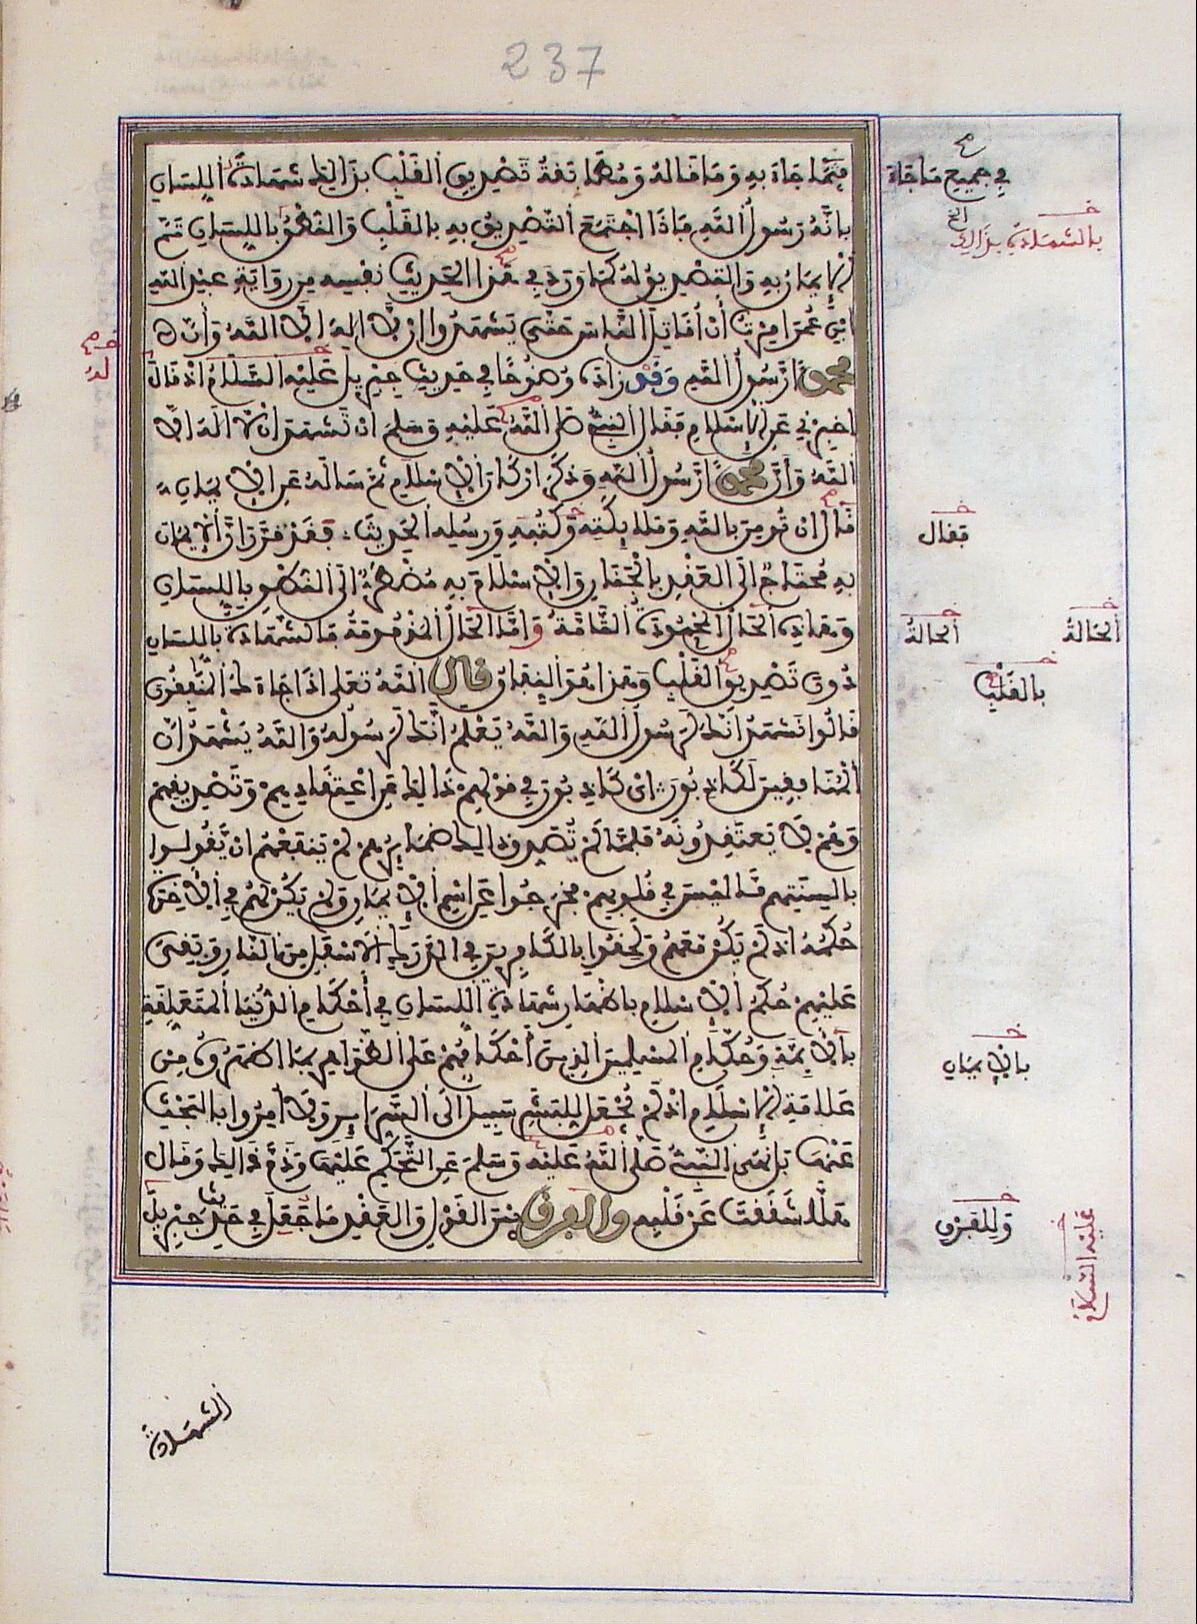 237
فيما جاء به وما قاله ومطابقة تصديق القلب بذلك شهادة اللسان
بأنه رسول الله فإذا اجتمع التصديق به بالقلب والنطق باللسان تم
الإيمان به والتصديق له كما ورد في هذا الحديث نفسه من رواية عبد الله
ابن عمر أمرت أن أقاتل الناس حتى يشهدوا أن لا إله إلا الله وأن
محمدا رسول الله وقد زاده وضوحا في حديث جبريل عليه السلام إذ قال
أخبرني عن الإسلام فقال النبي صلى الله عليه وسلم أن تشهد أن لا إله إلا
الله وأن محمدا رسول الله وذكر أركان الإسلام ثم سأله عن الإيمان
قال أن تومن بالله وملائكته وكتبه ورسله الحديث فقد قرر أن الإيمان
به محتاج إلى العقد بالجنان والإسلام به مضطر إلى النطق باللسان
وهذه الحال المحمودة التامة وأما الحال المذمومة فالشهادة باللسان
دون تصديق القلب وهذا هو النفاق قال الله تعلى إذا جاءك المنافقون
قالوا نشهد إنك لرسول الله والله يعلم إنك لرسوله والله يشهد إن
المنافقين لكاذبون أي كاذبون في قولهم ذلك عن اعتقادهم وتصديقهم
وهم لا يعتقدونه فلما لم تصدق ذلك ضمائرهم لم ينفعهم أن يقولوا
بألسنتهم ما ليس في قلوبهم فخرجوا عن اسم الإيمان ولم يكن لهم في الآخرة
حكمه إذ لم يكن معهم ولحقوا بالكافرين في الدرك الأسفل من النار وبقي
عليهم حكم الإسلام بإظهار شهادة اللسان في أحكام الدنيا المتعلقة
بالأئمة وحكام المسلمين الذين أحكامهم على الظواهر بما أظهروه من
علامة الإسلام إذ لم يجعل للبشر سبيل إلى السرائر ولا أمروا بالبحث
عنها بل نهى النبي صلى الله عليه وسلم عن التحكم عليها وذم ذلك وقال
هلا شققت عن قلبه والفرق بين القول والعقد ما جعل في حديث جبريل
في جميع ما جاء
بالشهادة بذلك الخ
له
فقال
الحالة
الحالة
بالقلب
بالإيمان
وللفرق
عليه السلام
الشهادة